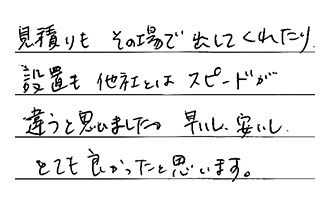 見積りも その場で出してくれたり.
設置も 他社とは スピードが
違うと思いました。 早いし、安いし.
とても良かったと思います。